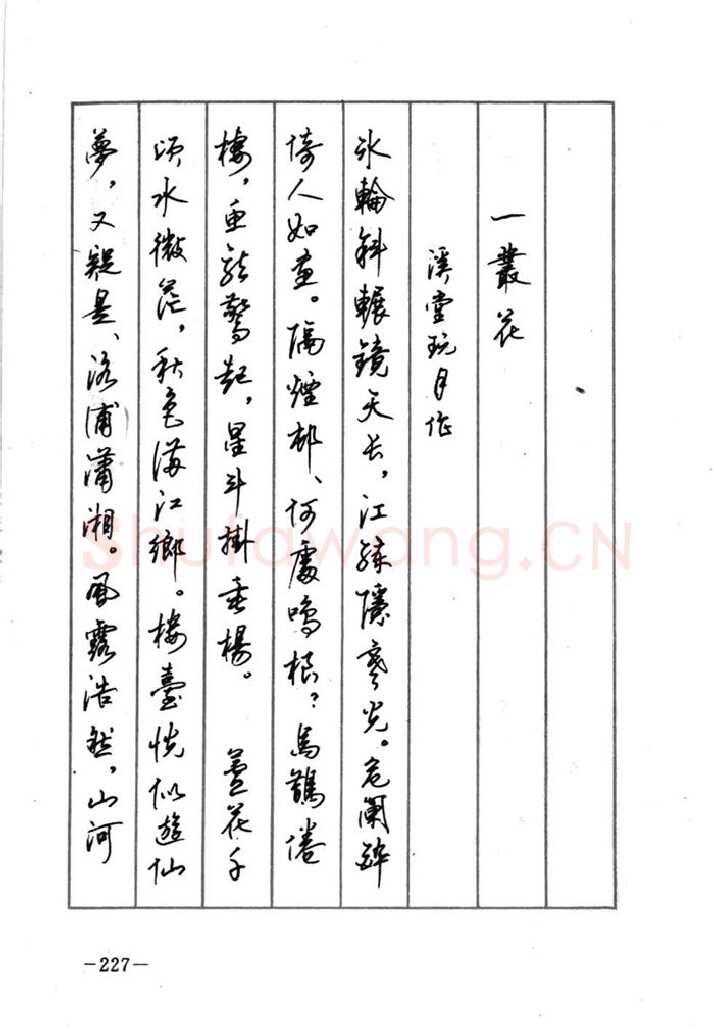 一叢花
溪堂玩月作
冰輪斜輾鏡天长，江練隱寒光。危闌醉
倚人如畫。隔煙邨、何處鳴桹？烏鵲倦
棲，魚龍驚起，星斗掛垂楊。　蘆花千
頃水微茫，秋色滿江鄉。樓臺恍似遊仙
夢，又疑是、洛浦瀟湘。風露浩然，山河
Shufawang.CN
-227-